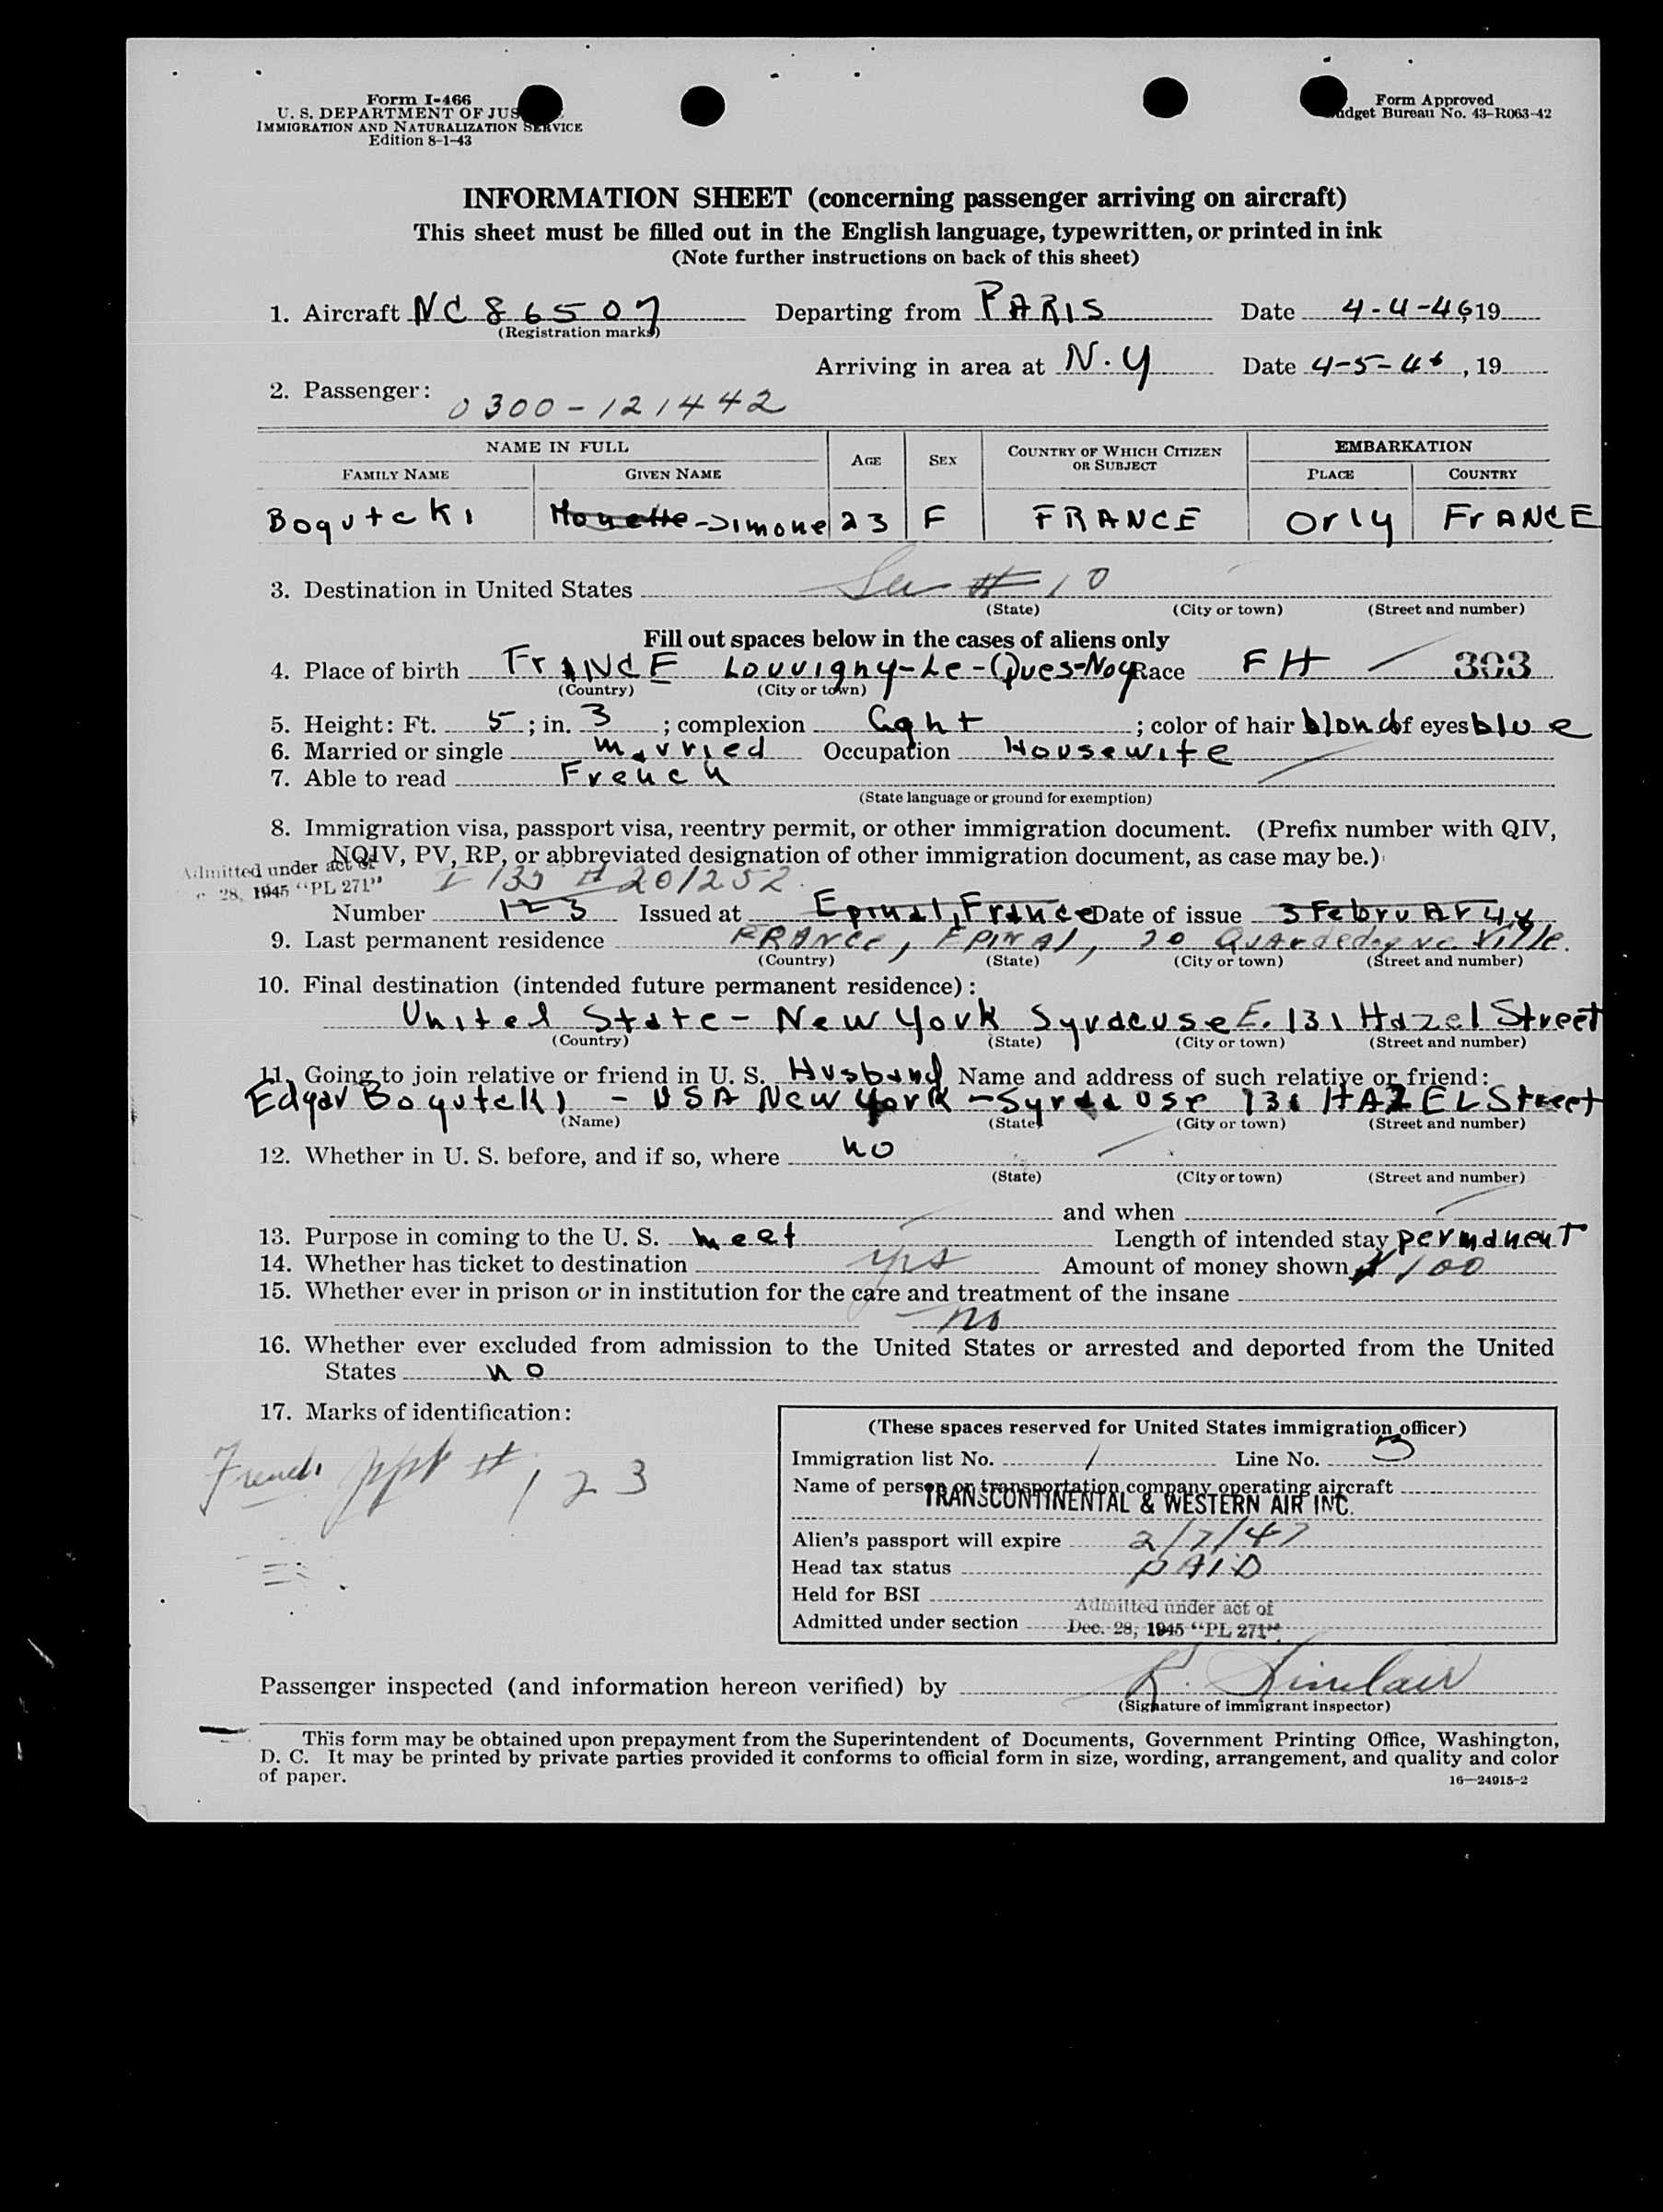 Form I-466
U. S. DEPARTMENT OF JUS
IMMIGRATION AND NATURALIZATION SERVICE
Edition 8-1-43
Form Approved
udget Bureau No. 43-R063-42
INFORMATION SHEET (concerning passenger arriving on aircraft)
This sheet must be filled out in the English language, typewritten, or printed in ink
(Note further instructions on back of this sheet)
1. Aircraft NC 86507 Departing from PARIS Date 4-4-46, 19
(Registration marks)
Arriving in area at N.Y Date 4-5-46, 19
2. Passenger: 0300-121442
NAME IN FULL AGE SEX COUNTRY OF WHICH CITIZEN OR SUBJECT EMBARKATION
FAMILY NAME GIVEN NAME PLACE COUNTRY
Bogutcki -Simone 23 F FRANCE Orly FrANCE
3. Destination in United States # 10
(State) (City or town) (Street and number)
Fill out spaces below in the cases of aliens only
4. Place of birth FrANCE Louvigny-Le-Ques-Noy Race FH 303
(Country) (City or town)
5. Height: Ft. 5; in. 3; complexion light; color of hair blond of eyes blue
6. Married or single married Occupation Housewife
7. Able to read French
(State language or ground for exemption)
8. Immigration visa, passport visa, reentry permit, or other immigration document. (Prefix number with QIV,
NQIV, PV, RP, or abbreviated designation of other immigration document, as case may be.)
Admitted under act of
28, 1945 "PL 271"
I 135 # 201252
Number 123 Issued at Epinal, France Date of issue 3 FebruAr 46
9. Last permanent residence FRANCE, EPINAL, 20 Ville.
(Country) (State) (City or town) (Street and number)
10. Final destination (intended future permanent residence):
United State - New York Syracuse E. 131 Hazel Street
(Country) (State) (City or town) (Street and number)
11. Going to join relative or friend in U. S. Husband Name and address of such relative or friend:
Edgar Bogutcki - USA New York - Syracuse 131 HAZEL Street
(Name) (State) (City or town) (Street and number)
12. Whether in U. S. before, and if so, where no
(State) (City or town) (Street and number)
and when
13. Purpose in coming to the U. S. meet Length of intended stay permanent
14. Whether has ticket to destination yes Amount of money shown $100
15. Whether ever in prison or in institution for the care and treatment of the insane
no
16. Whether ever excluded from admission to the United States or arrested and deported from the United
States no
17. Marks of identification:
French ppt # 123
(These spaces reserved for United States immigration officer)
Immigration list No. 1 Line No. 3
Name of person or transportation company operating aircraft
TRANSCONTINENTAL & WESTERN AIR INC.
Alien's passport will expire 2/7/47
Head tax status PAID
Held for BSI
Admitted under section Admitted under act of
Dec. 28, 1945 "PL 271".
Passenger inspected (and information hereon verified) by R. Sinclair
(Signature of immigrant inspector)
This form may be obtained upon prepayment from the Superintendent of Documents, Government Printing Office, Washington,
D. C. It may be printed by private parties provided it conforms to official form in size, wording, arrangement, and quality and color
of paper.
16—24915-2